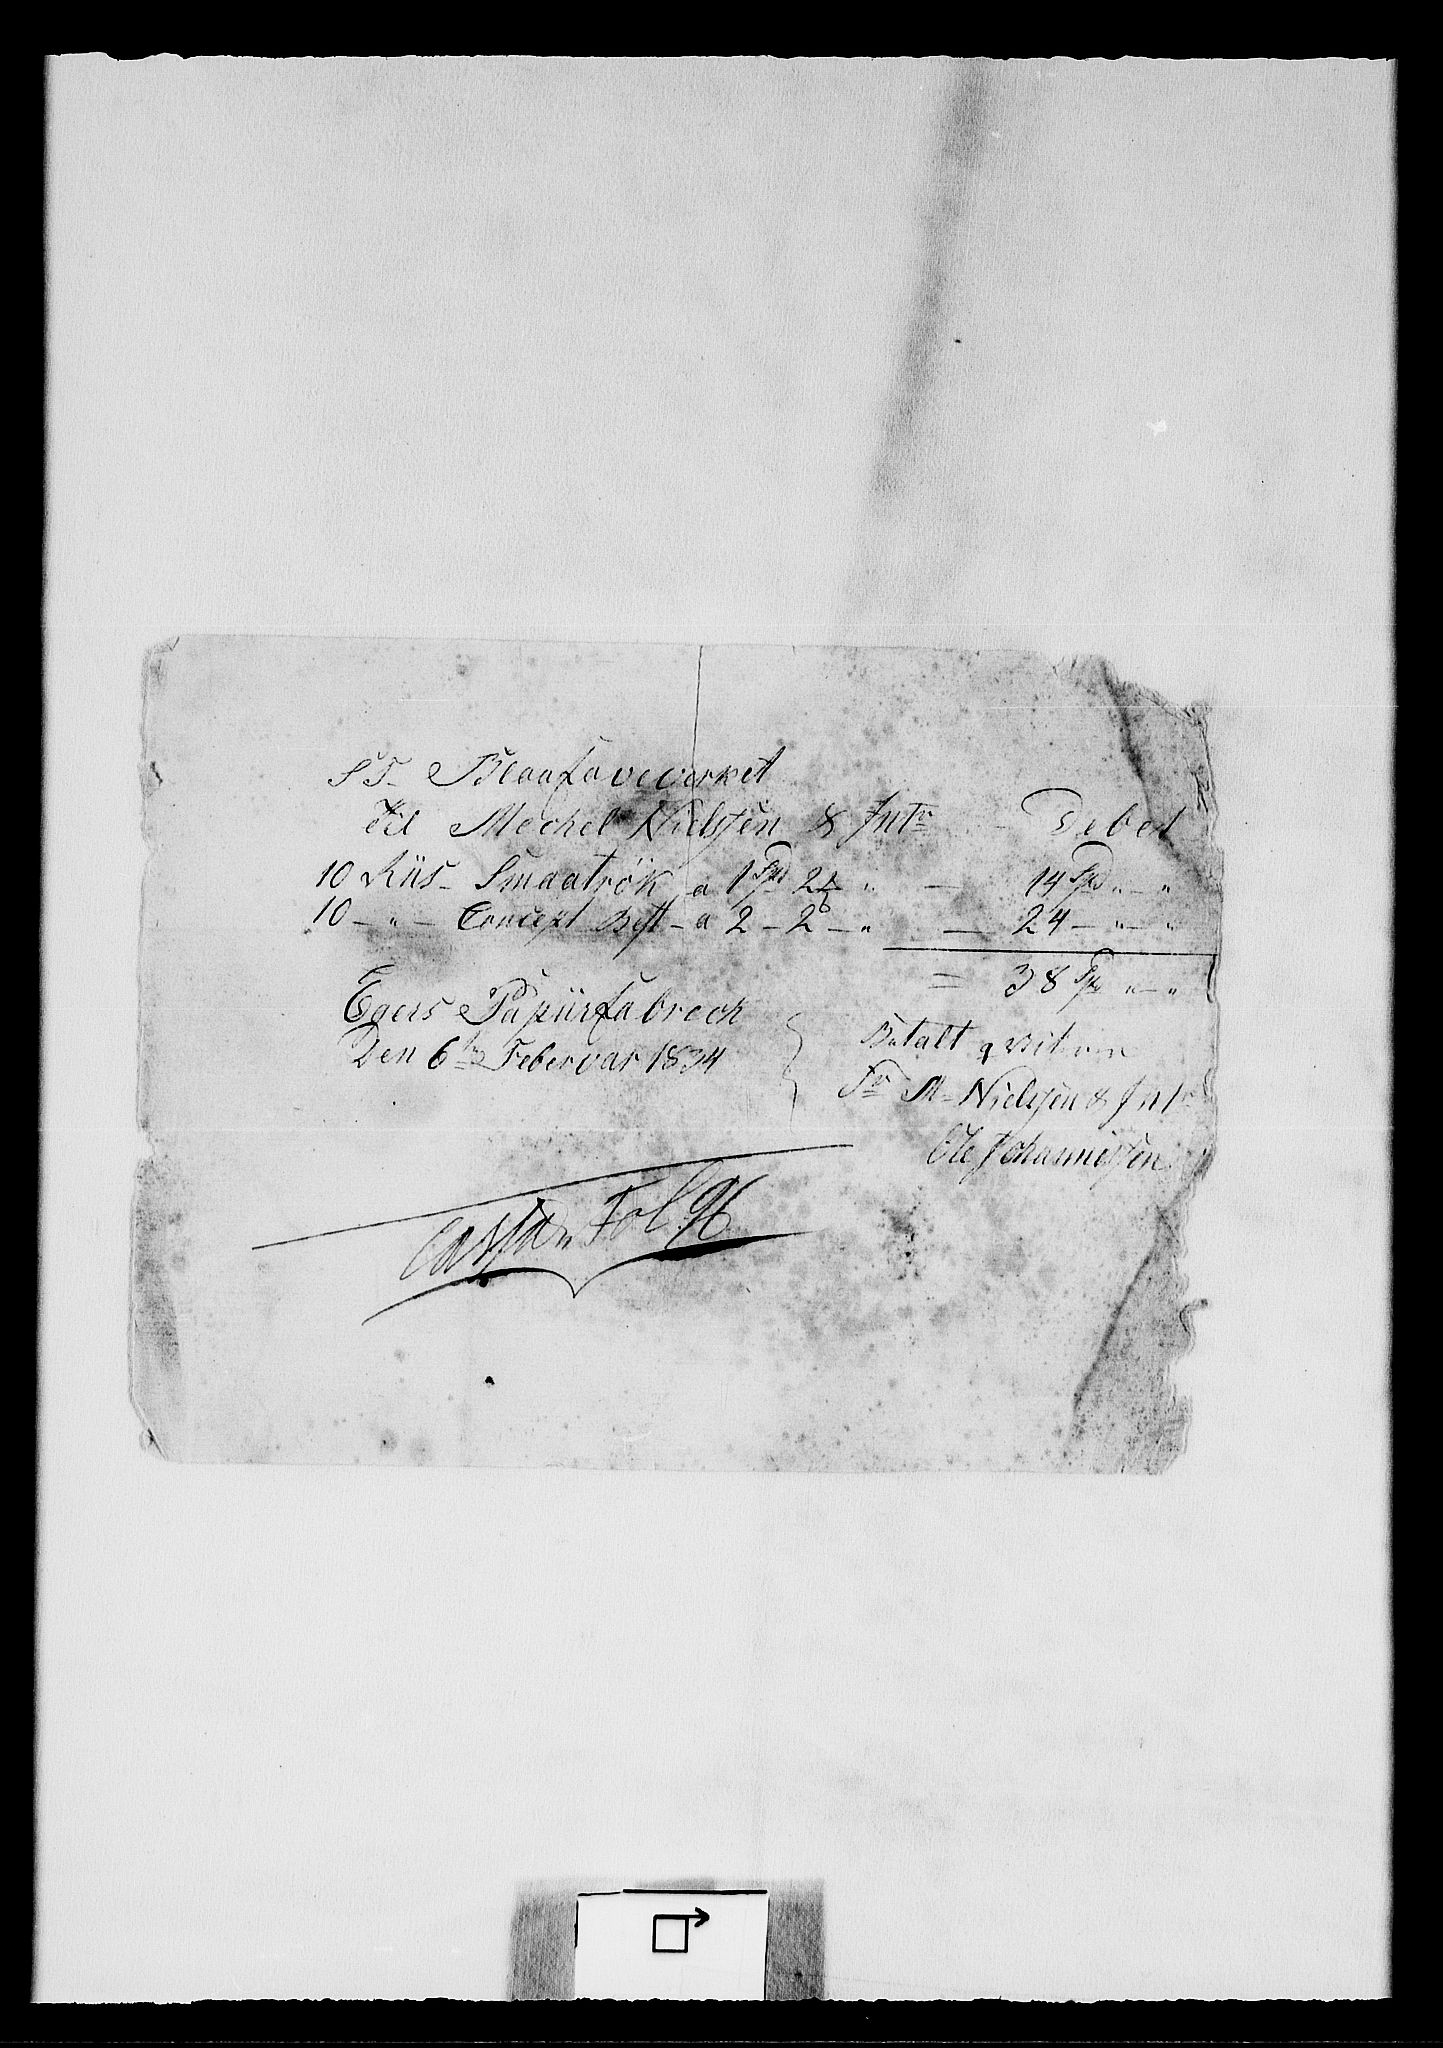 ST. Blaafaveverket
til Mechel Nielssen & Int<sup>r</sup> - Debet
10 Riis - Smaatrök a 1 Spd 2 " — 14 Spd " — "
10 — " — Concept Best - a 2 - 2 — " — 24 — " — "
= 38 Spd " — "
Egers Papiirfabreck
Den 6<sup>te</sup> Febervar 1834
Betalt qviterer
Fr M- Nielssen & Int<sup>r</sup>
Ole Johannessen
Cassa Fol. 96